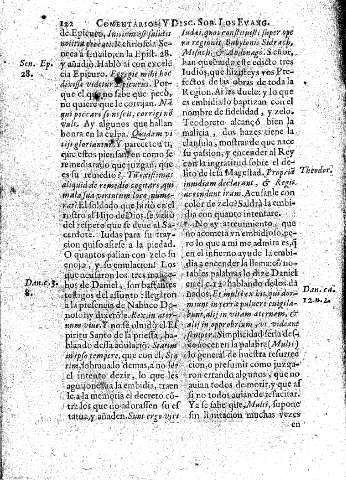 122 COMENTARIOS, Y DISC. SOB. LOS EVANG.
Sen. Ep.
28.
Dan. c. 3.
8.
de Epicuro,
Lucilo, en la Epist. 28.
y añadiò. Hablò assi con excelē
cia Epicuro. Egregie mihi hoc
dixisse videtur Epicurus. Por-
que el que no sabe que pecò,
no quiere que le corrijan. Nā
qui peccare se nescit, corrigi nō
vult. Ay algunos que hallan
honra en la culpa. Quidam vi
tijs gloriantur. Y pareceteu ti,
que estos piensan en como se
remediarà lo que juzgan, que
es su remedio? Tu existimas
aliquid de remedio cogitare, qui
mala sua virtutum loco nume-
rat? El soldado que hiriò en el
rostro al Hijo de Dios, se valiò
del respeto que se deue al Sa-
cerdote. Iudas para su tray-
cion quiso asirse a la piedad.
O quantos palian con zelo su
enojo, y su emulacion! Los
que acusaron los tres mance-
bos de Daniel, son bastantes
testigos del assunto; llegaron
a la presencia de Nabuco Do-
nosor, y dixerō: Rex in æter-
num viue. Y no se oluidò el Es
piritu Santo de la priessa, ha-
blando desta adulaciō. Statim
in ipso tempore, que con el, Sta
tim, sobraua lo demas, a no ser
el intento dezir, lo que les
aguijoneaua la embidia, traen
le a la memoria el decreto cō-
tra los que no adorassen su es
tatua, y añaden. Sunt ergo viri
Iudæi, quos constituisti super ope
ra regionis Babylonis Sidrach,
Misach, & Abdenago. Señor,
han quebrado este edicto tres
Iudios, que hiziste Reyes Pre-
fectos de las obras de toda la
Region. Ai les duele; y lo que
es embidia lo baptizan con el
nombre de fidelidad, y zelo.
Teodoreto alcançò bien la
malicia, dos hazes tiene la
clausula, mostrar de que nace
su passion, y encender al Rey
con la ingratitud sobre el de-
lito de lesa Magestad. Propriā
inuidiam declarant, & Regiæ
accendunt iram. Acusanle con
color de zelo? Saldrà la embi-
dia con quanto intentare.
No ay atreuimiento, que
no acometa vn embidioso, pe-
ro lo que a mi me admira es, q̄
en el infierno ayude la embi-
dia a encender las llamas: no-
tables palabras lo dize Daniel
en el c. 12. hablando de los da
ñados. Et multi ex his, qui dor-
miunt in terræ puluere euigila-
bunt, alij in vitam æternam, &
alij in opprobrium, vt videant
semper. Simplicidad seria des-
conocer en la palabra (Multi)
lo general de nuestra resurrec
cion, o presumir como juzga-
ron errando algunos, que no
auian todos de morir, y que as
si no todos auian de resucitar.
Ya se sabe que, Multi, supone
sin limitacion muchas vezes
en
Theodor.
Dan. ca.
12. n. 2.